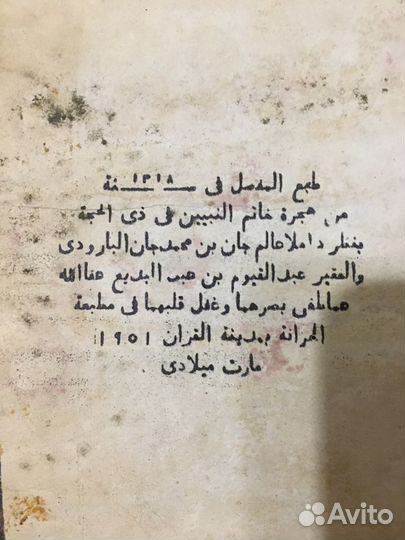 طبع المفصل فى سنة ١٣١٨
من هجرة خاتم النبيين فى ذى الحجة
بنظر داملا عالم جان بن محمد جان البارودى
والفقير عبد القيوم بن عبد البديع عفا الله
عما طغى بصرهما وغفل قلبهما فى مطبعة
الخزانة بمدينة القزان ١٩٥١
مارت ميلادى
Avito